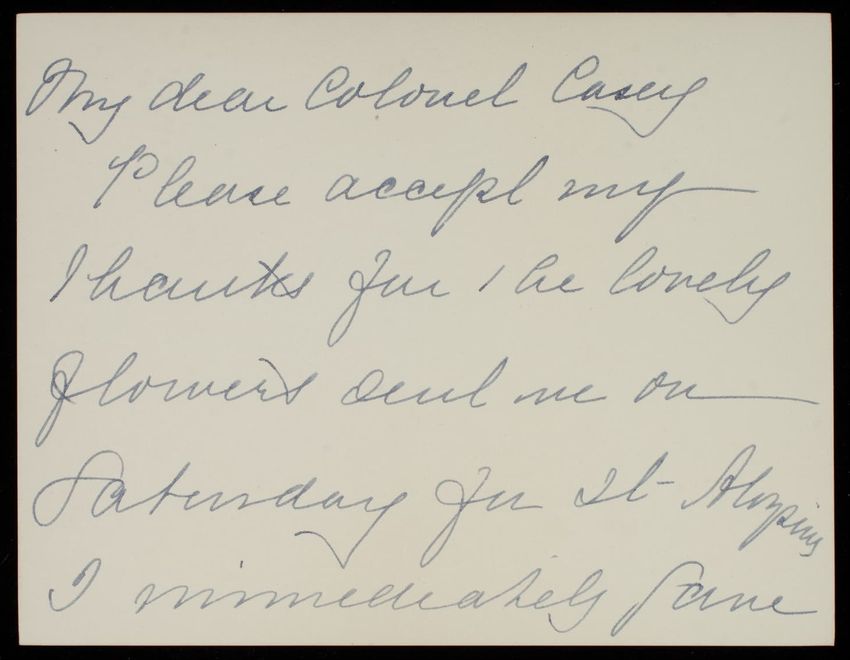 My dear Colonel Casey
Please accept my
thanks for the lovely
flowers sent me on
Saturday for St Aloysius
I immediately gave